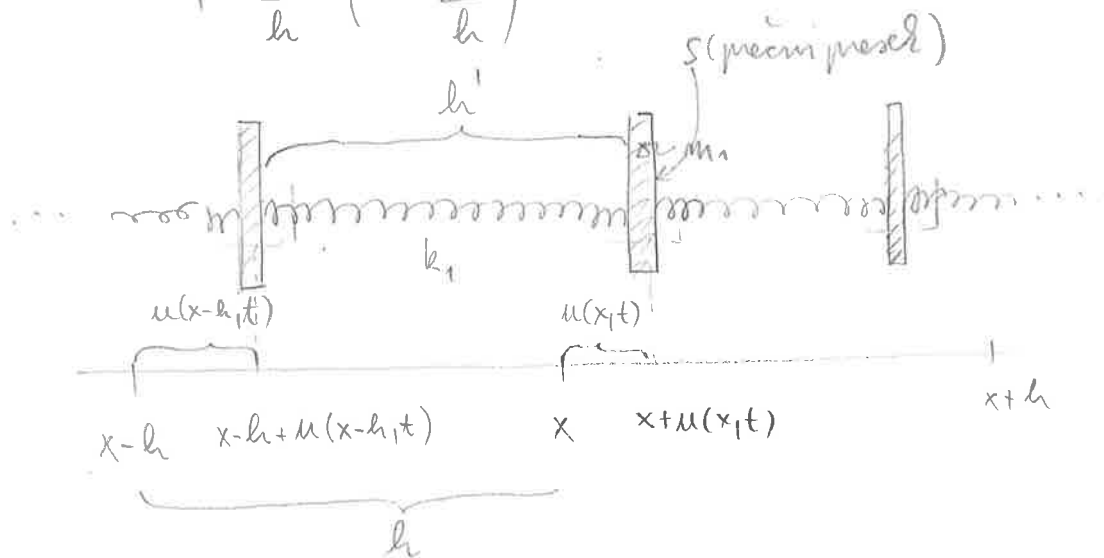 h ( h )
S (prečni presek)
h'
m₁
... ...
k₁
u(x-h,t) u(x,t)
x-h x-h+u(x-h,t) x x+u(x,t) x+h
h